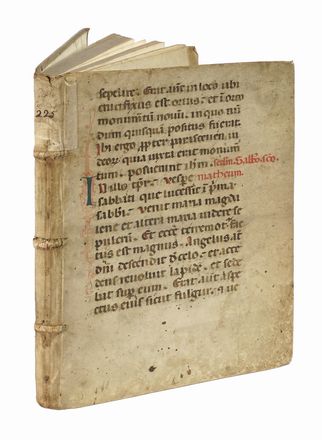 225
sepelire. Erat aut in loco ubi
crucifixus est ortus. et i orto
monumtu nouu. in quo nu
dum quisqua positus fuerat.
Ibi ergo propter parasceuen iu
deorz quia iuxta erat monumen
tum. posuerunt ihm. scdm Sabbo sco.
In illo tpr. Vespe matheum.
sabbati que lucescit i pma
sabbi. uenit maria magda
lene et altera maria uidere se
pulcru. Et ecce terremot fac
tus est magnus. Angelus aut
dni descendit de celo. et acce
dens reuoluit lapide. et sede
bat sup eum. Erat aut aspe
ctus eius sicut fulgur. et ue